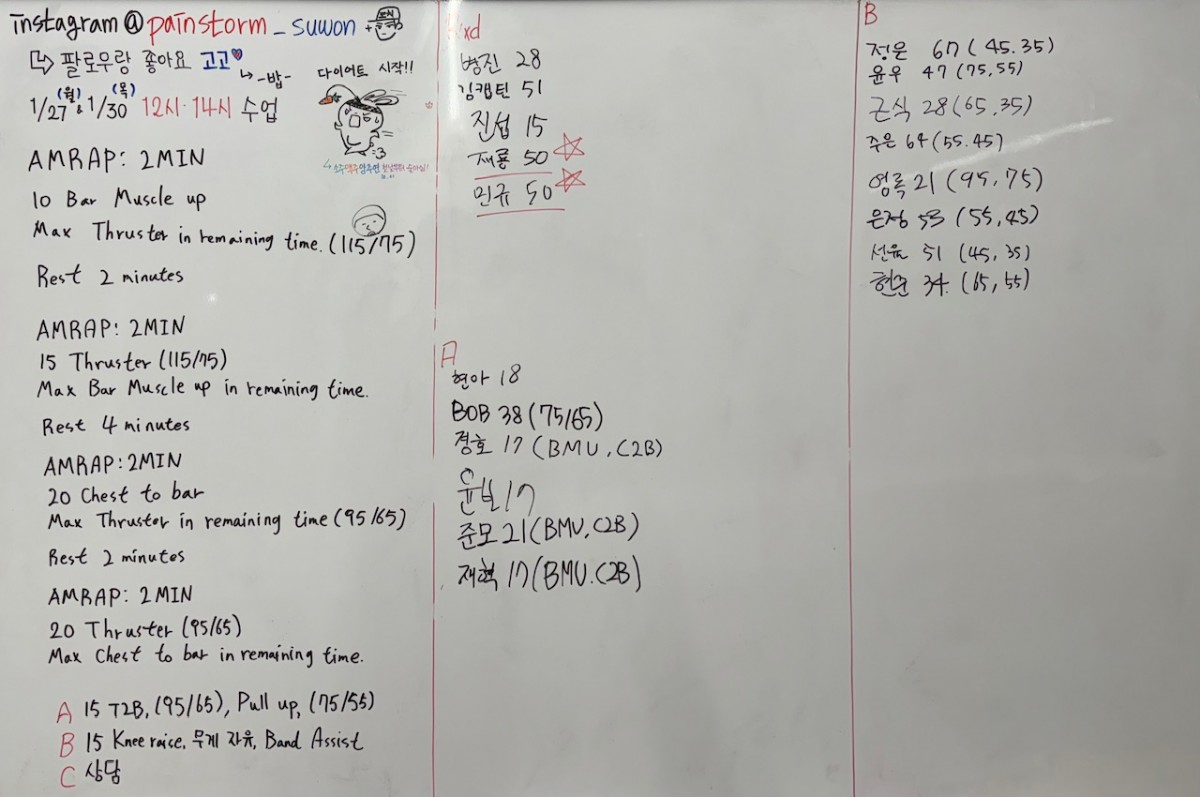 instagram@painstorm_suwon
팔로우랑 좋아요 고고
-밥-
다이어트 시작!!
1/27(월) & 1/30(목) 12시·14시 수업
AMRAP: 2MIN
10 Bar Muscle up
Max Thruster in remaining time. (115/75)
Rest 2 minutes
AMRAP: 2MIN
15 Thruster (115/75)
Max Bar Muscle up in remaining time.
Rest 4 minutes
AMRAP: 2MIN
20 Chest to bar
Max Thruster in remaining time (95/65)
Rest 2 minutes
AMRAP: 2MIN
20 Thruster (95/65)
Max Chest to bar in remaining time.
A 15 T2B, (95/65), Pull up, (75/55)
B 15 Knee raise, 무게 자유, Band Assist
C 상담
병진 28
김캡틴 51
진섭 15
재룡 50
민규 50
A
현아 18
BOB 38 (75/65)
경호 17 (BMU, C2B)
17
준모 21 (BMU, C2B)
재혁 17 (BMU. C2B)
B
정은 67 (45.35)
윤우 47 (75,55)
근식 28 (65,35)
주은 64 (55.45)
영록 21 (95,75)
은정 53 (55,45)
선율 51 (45,35)
현준 34. (65,55)